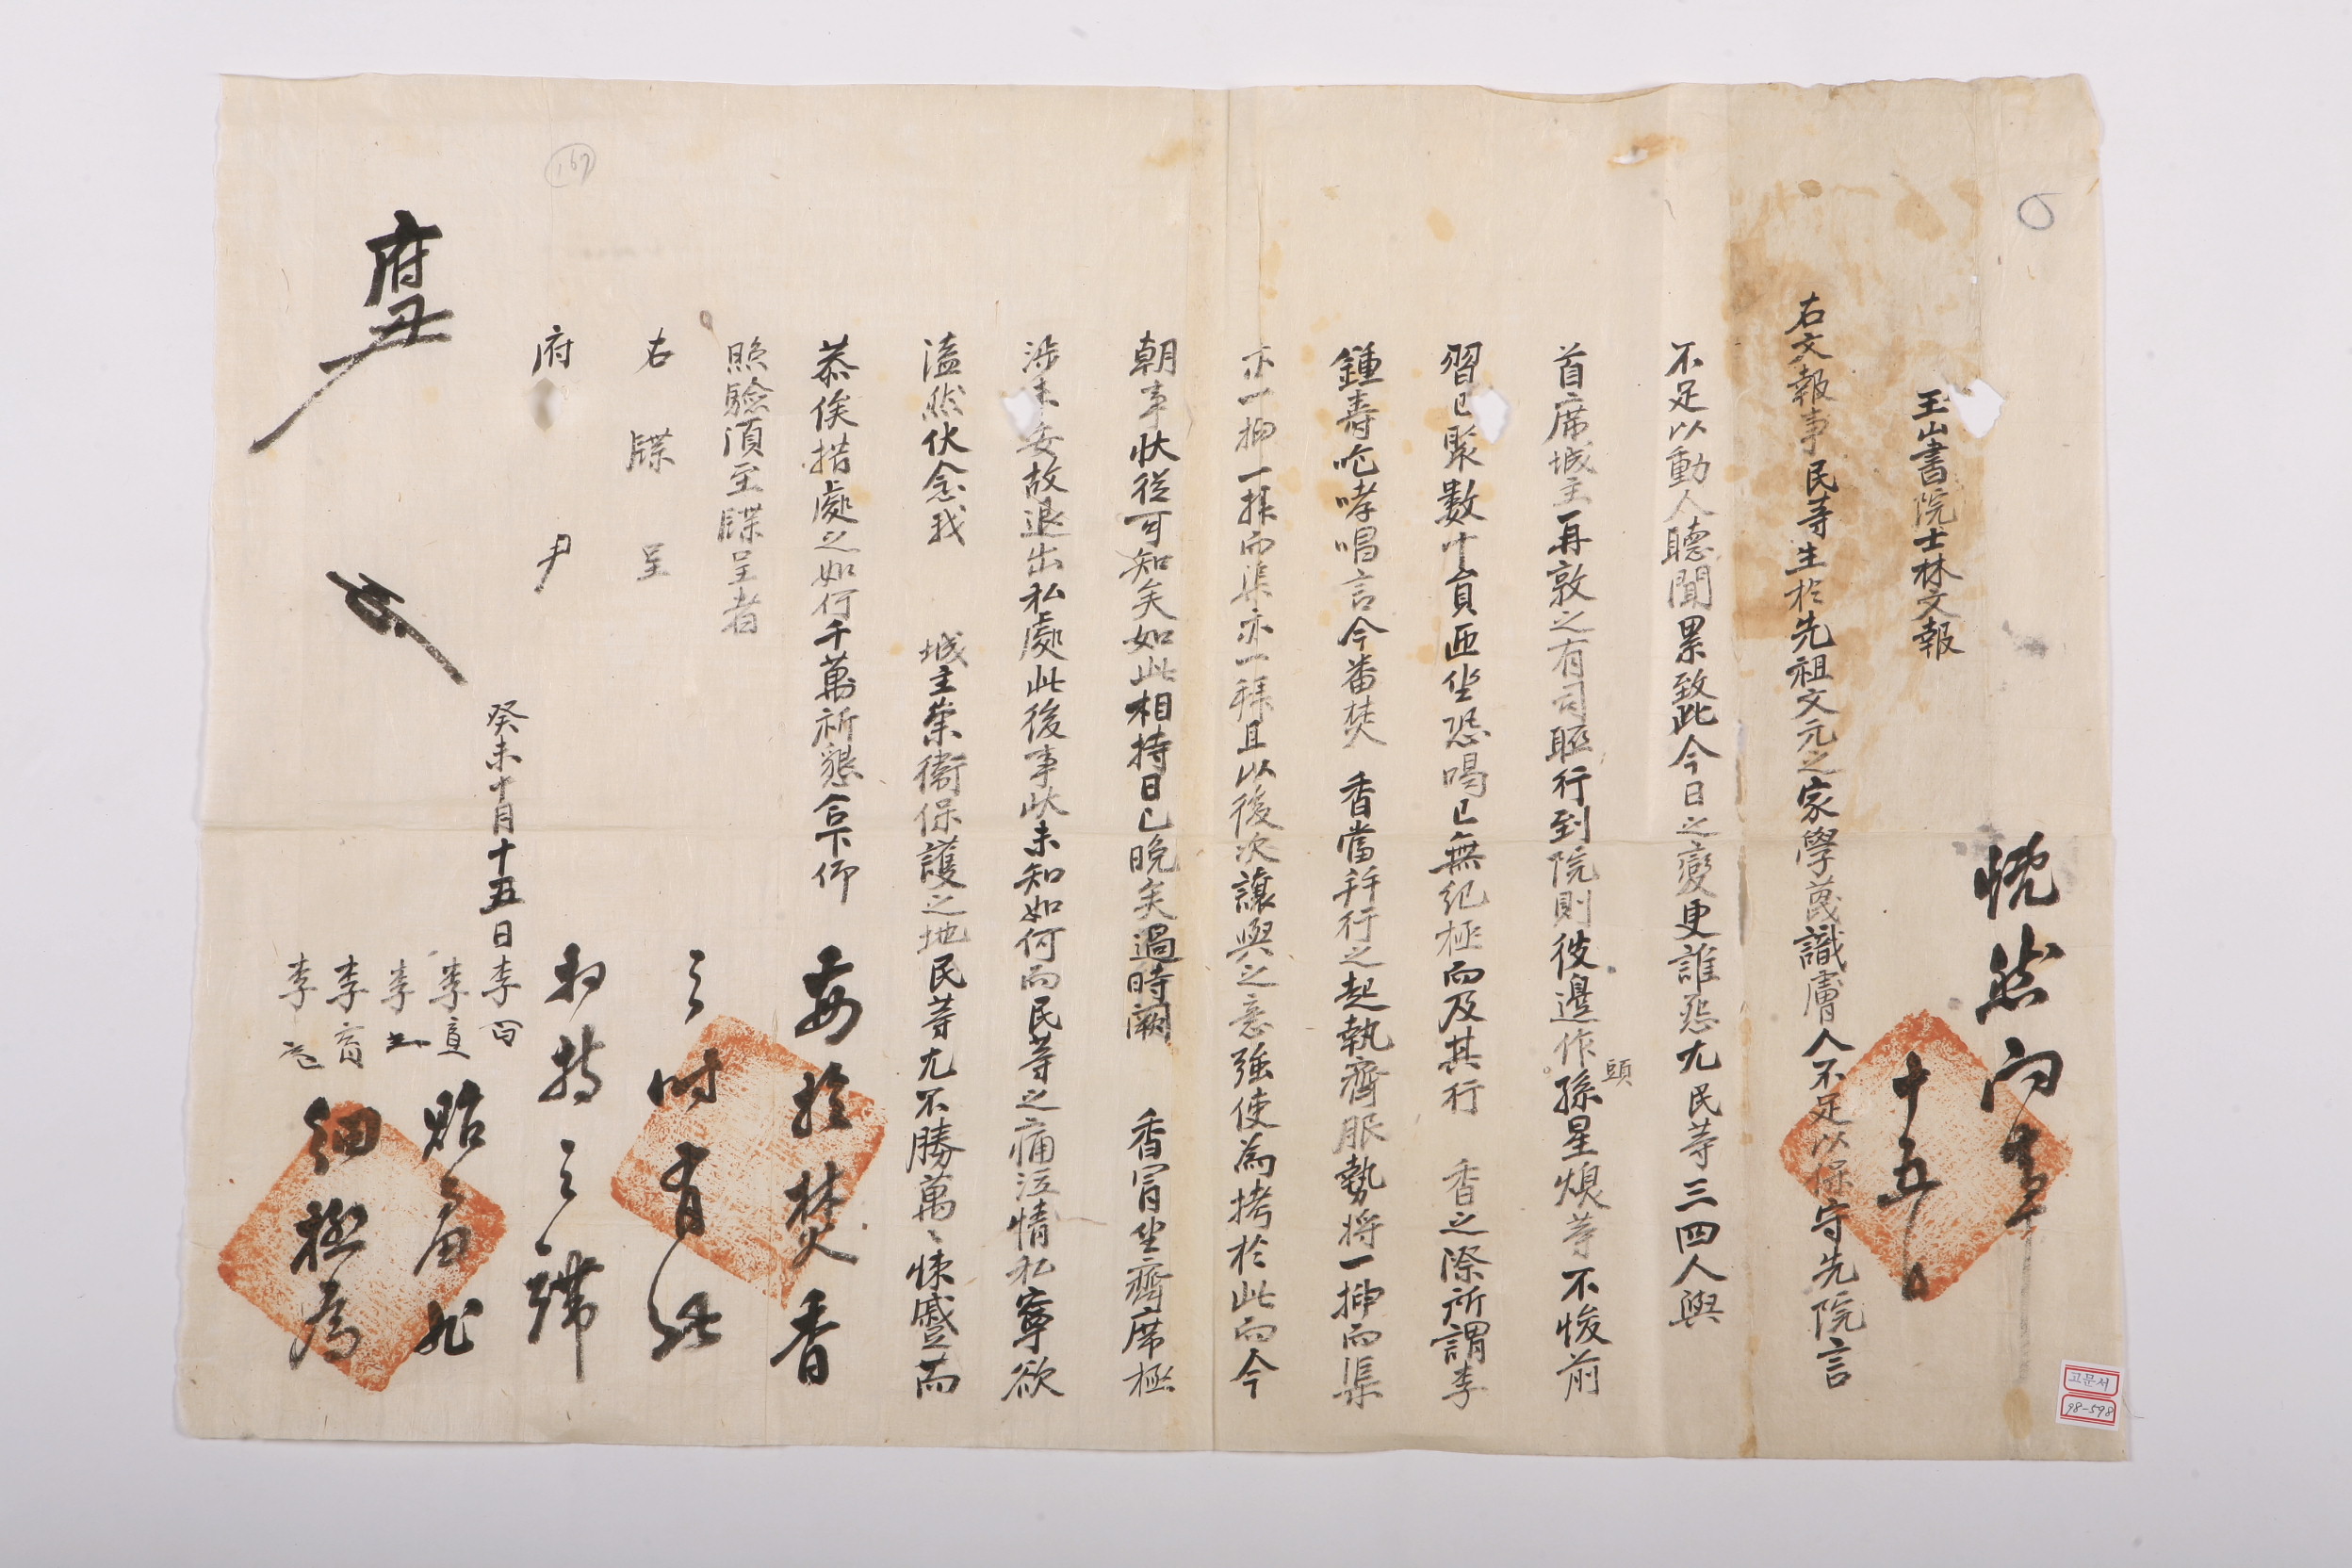 玉山書院士林文報
右文報事民等生於先祖文元之家學蔑識膚人不足以保守先院言
不足以動人聽聞累致此今日之變更誰怨尤民等三四人與
首席城主再敦之有司驅行到院則彼邊作頭孫星煥等不悛前
習已聚數十員匝坐恐喝已無紀極而及其行 香之際所謂李
鍾壽咆哮唱言今番焚 香當幷行之起執齊服勢將一揖而渠
亦一揖一拜而渠亦一拜且以後次讓與之意強使為拷於此而今
朝事狀從可知矣如此相持日已晚矣過時闕 香冒坐齋席極
涉未安故退出私處此後事狀未知如何而民等之痛泣情私寧欲
溘然伏念我 城主榮衛保護之地民等尤不勝萬〻悚蹙茲
恭俟措處之如何千萬祈懇合下仰
照驗湏至牒呈者
右牒呈
府尹
癸未十月十五日李
李
李
李
李
府
十五日
每於焚香
之時有此
相持之
細極為
고문서
98-598
169